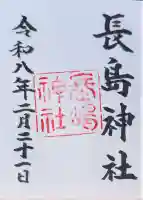 長島神社
令和八年二月二十一日
神社